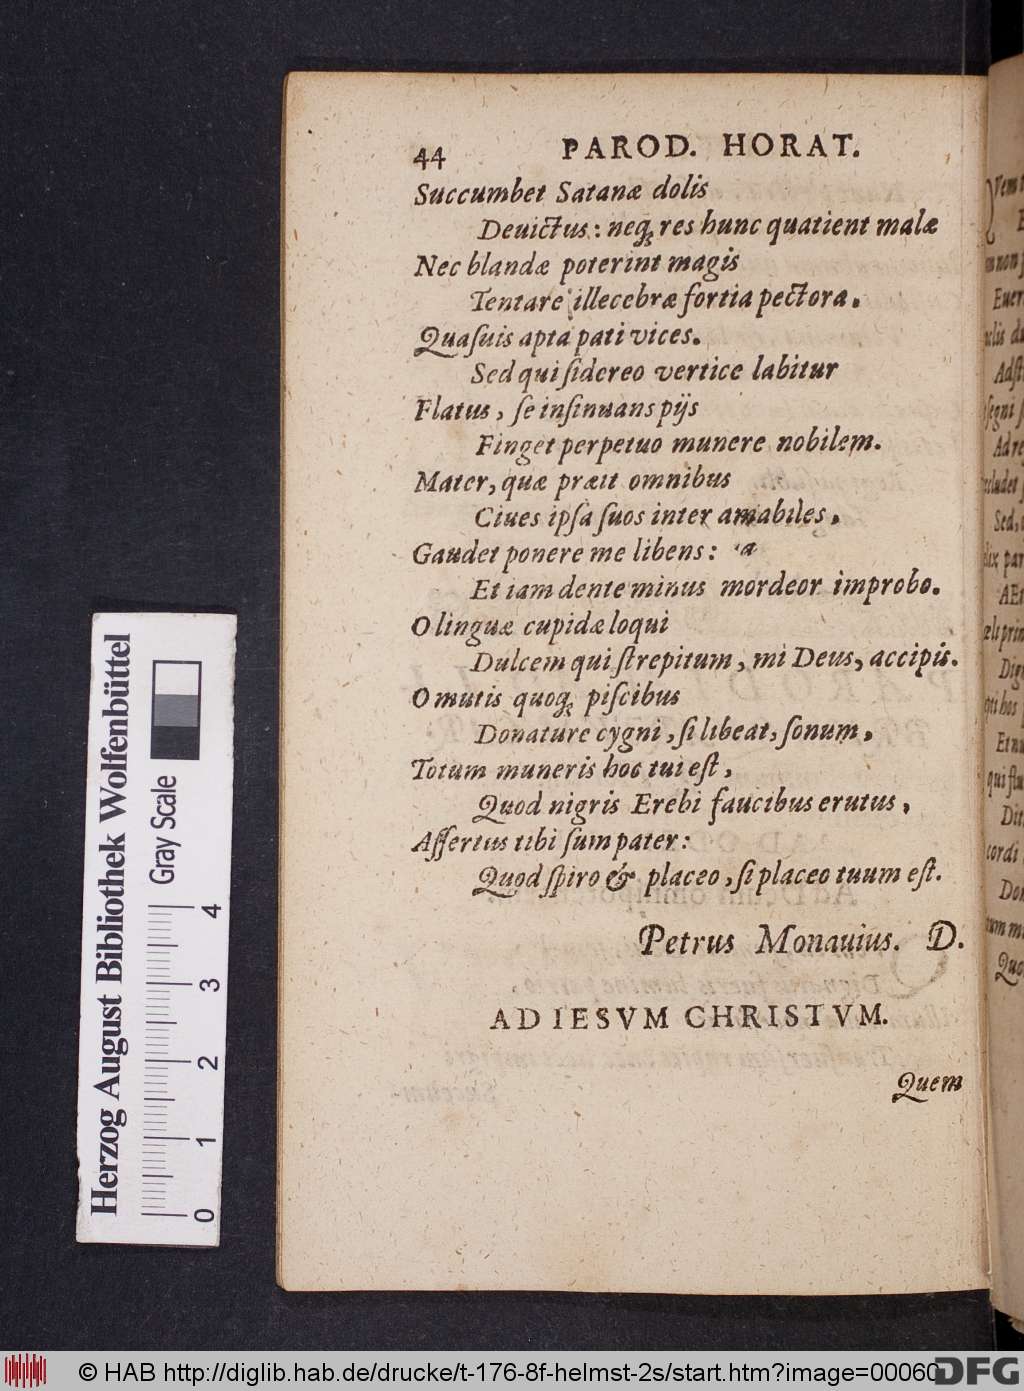 44 PAROD. HORAT.
Succumbet Satanæ dolis
Deuictus: neq; res hunc quatient malæ
Nec blandæ poterint magis
Tentare illecebræ fortia pectora.
Quaſuis apta pati vices.
Sed qui ſidereo vertice labitur
Flatus, ſe inſinuans pijs
Finget perpetuo munere nobilem.
Mater, quæ præit omnibus
Ciues ipſa ſuos inter amabiles,
Gaudet ponere me libens:
Et iam dente minus mordeor improbo.
O linguæ cupidæ loqui
Dulcem qui ſtrepitum, mi Deus, accipis.
O mutis quoq; piſcibus
Donature cygni, ſi libeat, ſonum,
Totum muneris hoc tui eſt,
Quod nigris Erebi faucibus erutus,
Aſſertus tibi ſum pater:
Quod ſpiro & placeo, ſi placeo tuum eſt.
Petrus Monauius. D.
AD IESVM CHRISTVM.
Quem
Herzog August Bibliothek Wolfenbüttel
Gray Scale
0 1 2 3 4
© HAB http://diglib.hab.de/drucke/t-176-8f-helmst-2s/start.htm?image=00060
DFG